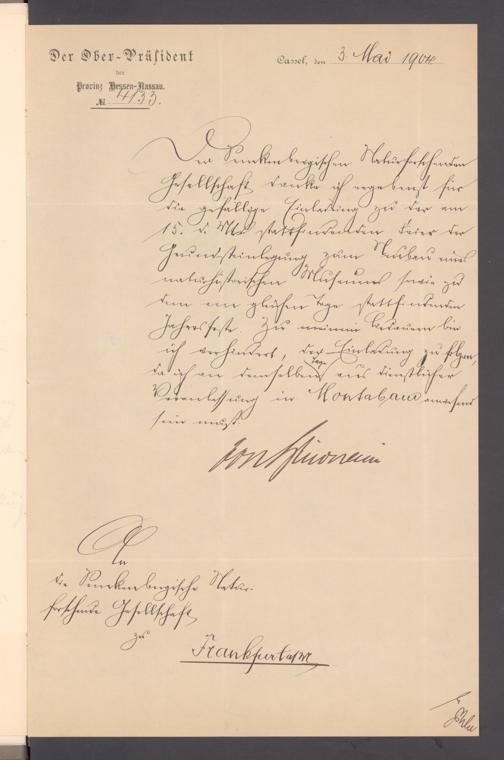 Der Ober-Präsident
der
Provinz Hessen-Nassau.
№ 4133.
Cassel, den 3. Mai 1904
Der Senckenbergischen Naturforschenden
Gesellschaft danke ich ergebenst für
die gefällige Einladung zu der am
15. d. Mts. stattfindenden Feier der
Grundsteinlegung zum Neubau eines
naturhistorischen Museums sowie zu
dem am gleichen Tage stattfindenden
Jahresfeste. Zu meinem Bedauern bin
ich verhindert, der Einladung zu folgen,
da ich an demselben Tage aus dienstlicher
Veranlassung in Montabaur anwesend
sein muß.
An
die Senckenbergische Natur-
forschende Gesellschaft
zu
Frankfurt a/M